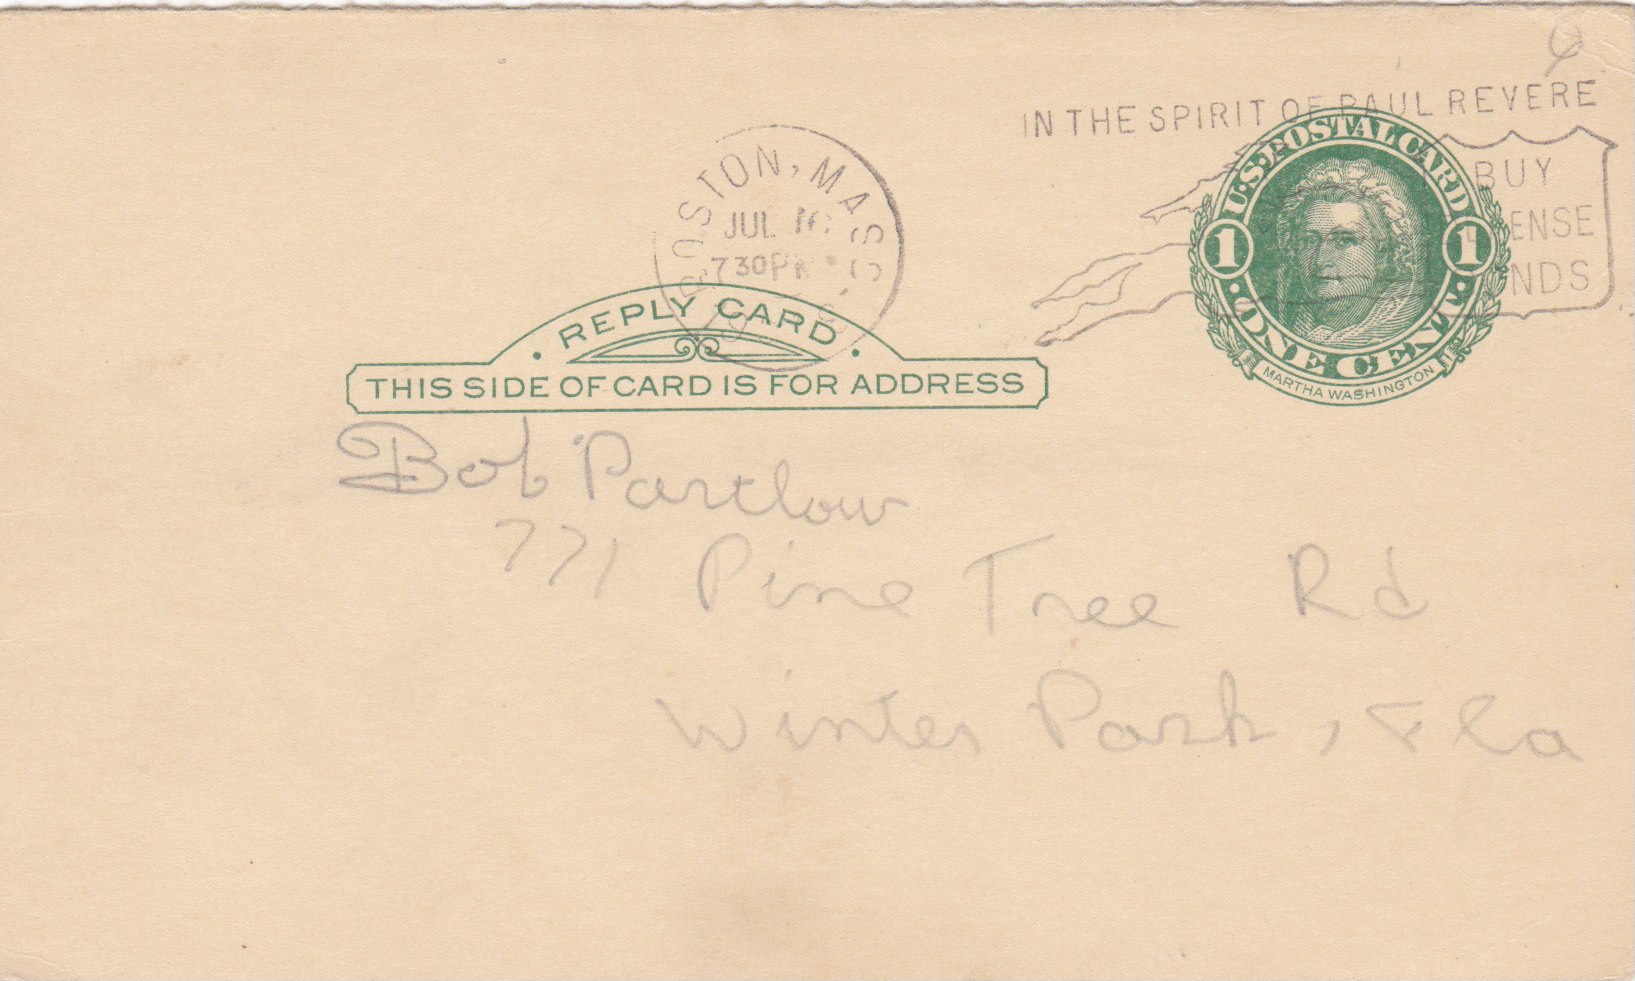 IN THE SPIRIT OF PAUL REVERE
BUY
ENSE
NDS
BOSTON, MASS
JUL
730PM
U·S·POSTAL CARD
1 1
·ONE CENT·
MARTHA WASHINGTON
·REPLY CARD·
THIS SIDE OF CARD IS FOR ADDRESS
Bob Partlow
771 Pine Tree Rd
Winter Park, Fla